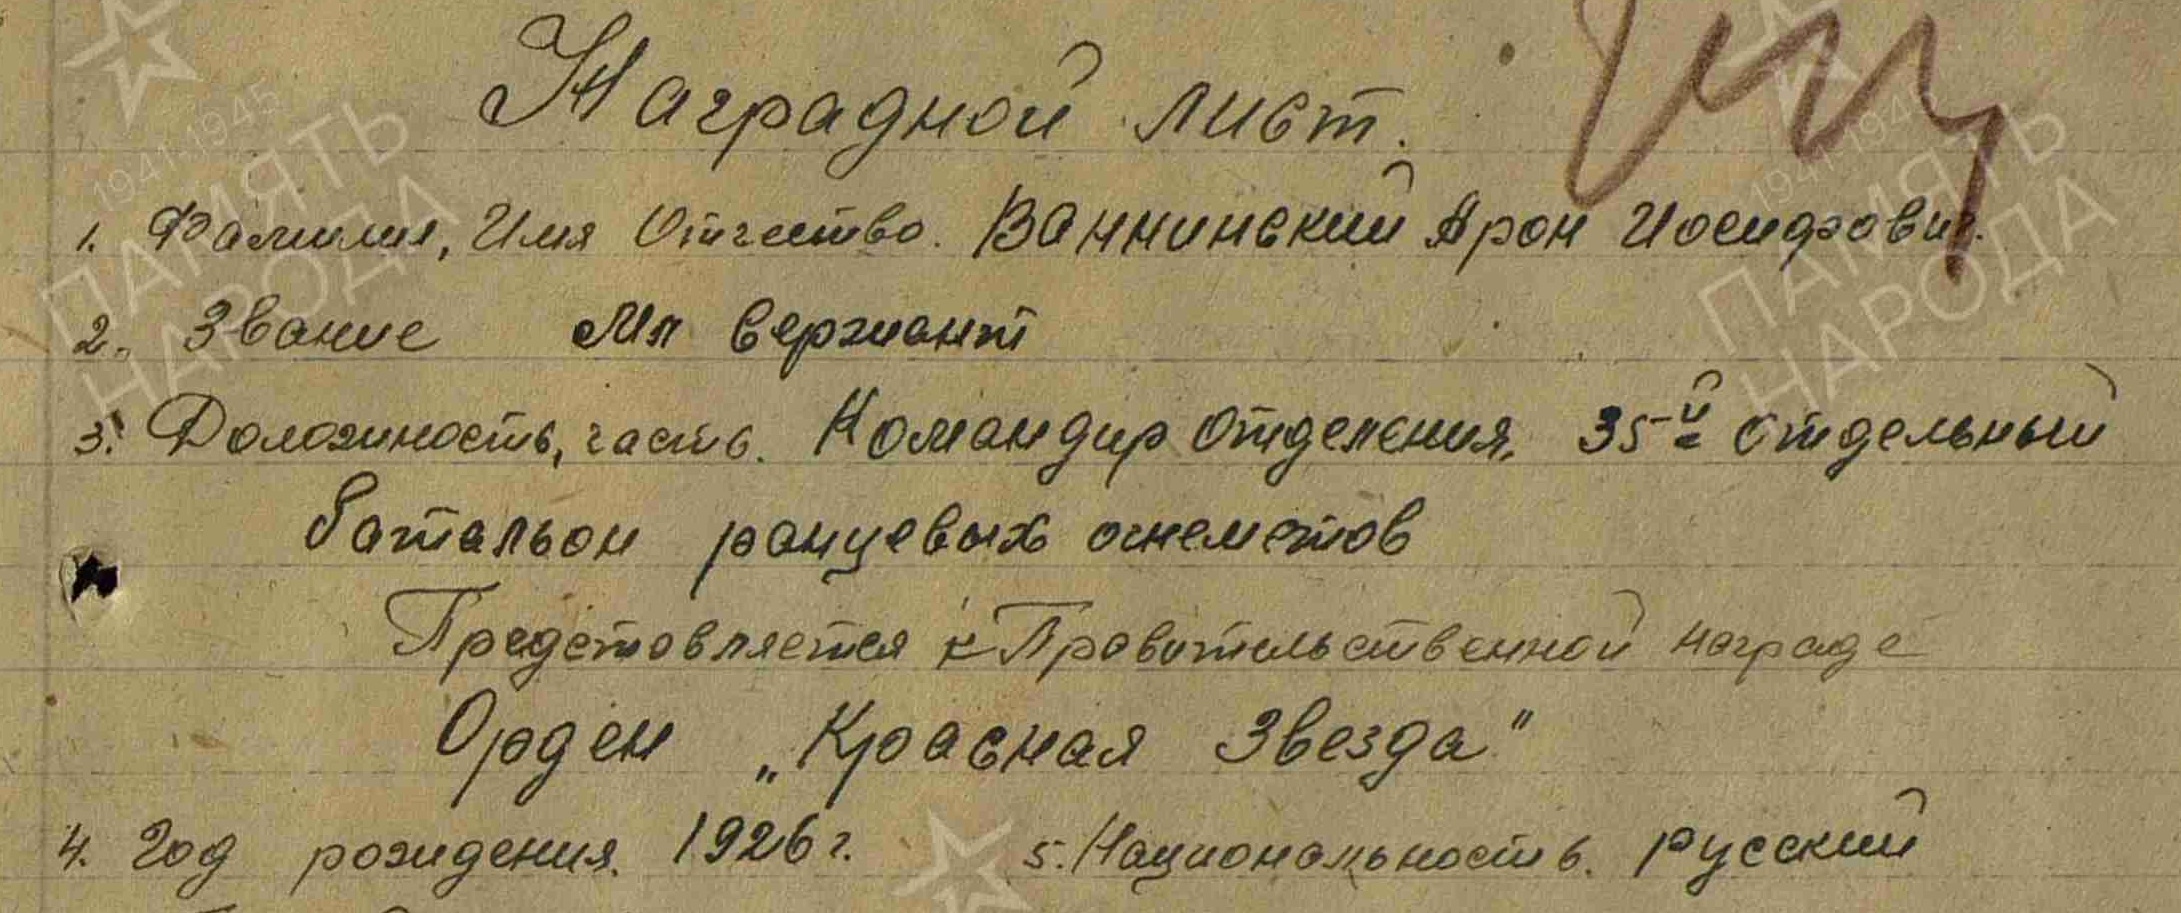 Наградной лист.
1. Фамилия, Имя Отчество. Ваннинский Арон Иосифович.
2. Звание Мл сержант
3. Должность, часть. Командир отделения, 35-й отдельный
батальон ранцевых огнеметов
Представляется к Правительственной награде
Орден „Красная Звезда"
4. Год рождения. 1926 г. 5. Национальность. русский
1941-1945
ПАМЯТЬ
НАРОДА
1941-1945
ПАМЯТЬ
НАРОДА